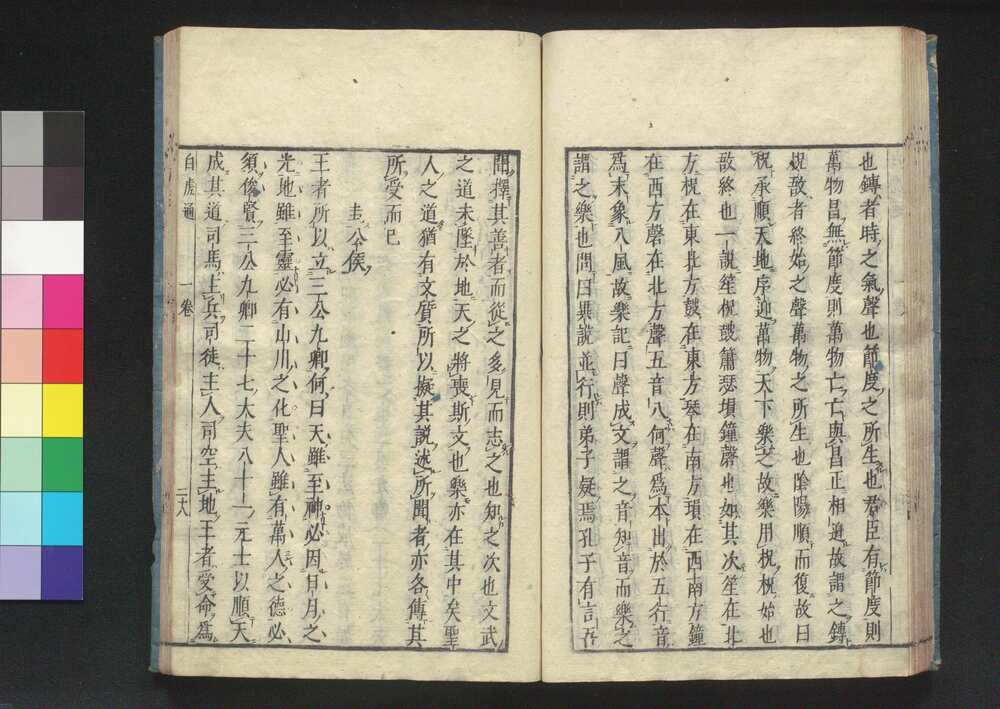 也鏄者時之氣聲也節度之所生也君臣有節度則
萬物昌無節度則萬物亡亡與昌正相迫故謂之鏄
柷敔者終始之聲萬物之所生也陰陽順而復故曰
柷承順天地序迎萬物天下樂之故樂用柷柷始也
敔終也一說笙柷鼓簫瑟塤鐘磬也如其次笙在北
方柷在東北方鼓在東方琴在南方塤在西南方鐘
在西方磬在北方聲五音八何聲爲本出於五行音
爲末象八風故樂記曰聲成文謂之音知音而樂之
謂之樂也問曰異說並行則弟子疑焉孔子有言吾
聞擇其善者而從之多見而志之也知之次也文武
之道未墜於地天之將喪斯文也樂亦在其中矣聖
人之道猶有文質所以擬其說述所聞者亦各傳其
所受而已
圭公侯
王者所以立三公九卿何曰天雖至神必因日月之
光地雖至靈必有山川之化聖人雖有萬人之德必
須俊賢三公九卿二十七大夫八十一元士以順天
成其道司馬主兵司徒主人司空主地王者受命爲
白虎通 一卷 二十八